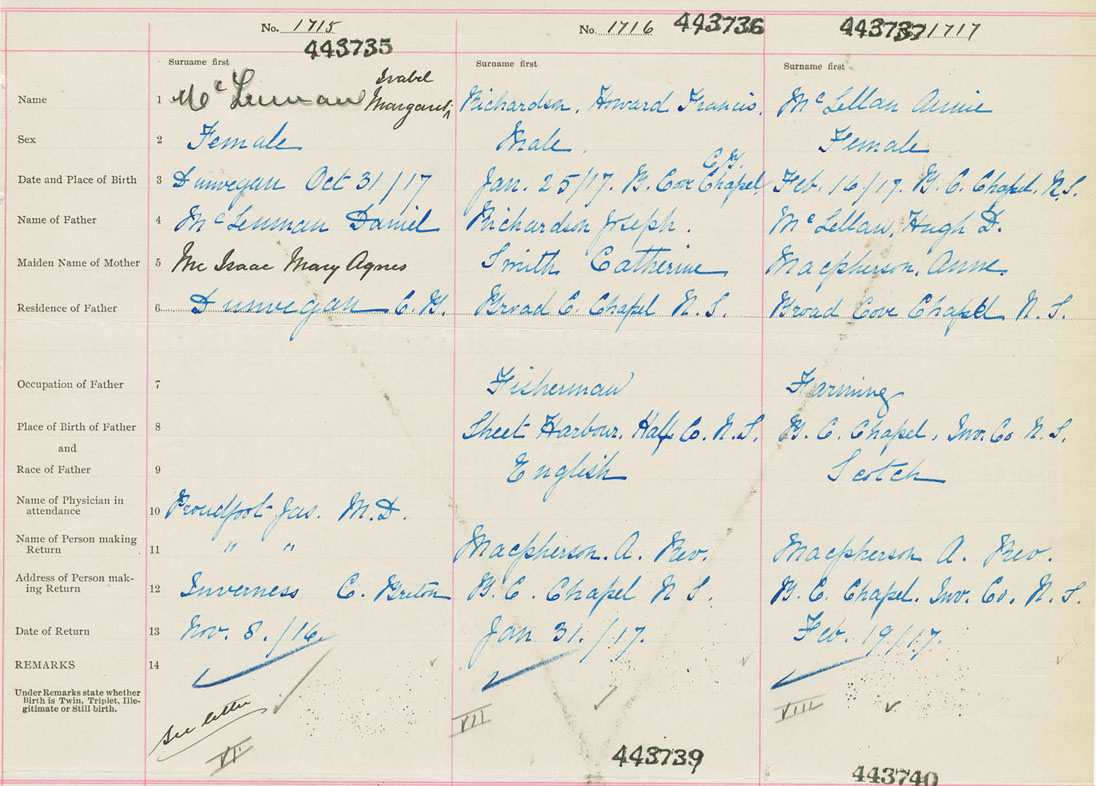 No. 1715 No. 1716 443736 443737 1717
443735
Surname first Surname first Surname first
Isabel
Name 1 McLennan Margaret Richardson, Howard Francis. McLellan Annie
Sex 2 Female Male. Female
C.B.
Date and Place of Birth 3 Dunvegan Oct 31/17 Jan. 25/17. B. Cove Chapel Feb. 16/17. B. C. Chapel, N.S.
Name of Father 4 McLennan Daniel Richardson Joseph. McLellan, Hugh D.
Maiden Name of Mother 5 Mc Isaac Mary Agnes Smith Catherine Macpherson, Anne
Residence of Father 6 Dunvegan C. B. Broad C. Chapel N. S. Broad Cove Chapel N. S.
Occupation of Father 7 Fisherman Farming
Place of Birth of Father 8 Sheet Harbour, Half Co. N. S. B. C. Chapel, Inv. Co N. S.
and
Race of Father 9 English Scotch
Name of Physician in
attendance 10 Proudfoot Jas. M. D.
Name of Person making
Return 11 " " Macpherson. A. Rev. Macpherson A. Rev.
Address of Person mak-
ing Return 12 Inverness C. Breton B. C. Chapel N S. B. C. Chapel. Inv. Co, N. S.
Date of Return 13 Nov. 8./16. Jan 31./17. Feb. 19/17.
REMARKS 14
Under Remarks state whether
Birth is Twin, Triplet, Ille-
gitimate or Still birth.
See letter
VI VII VIII
443739 443740